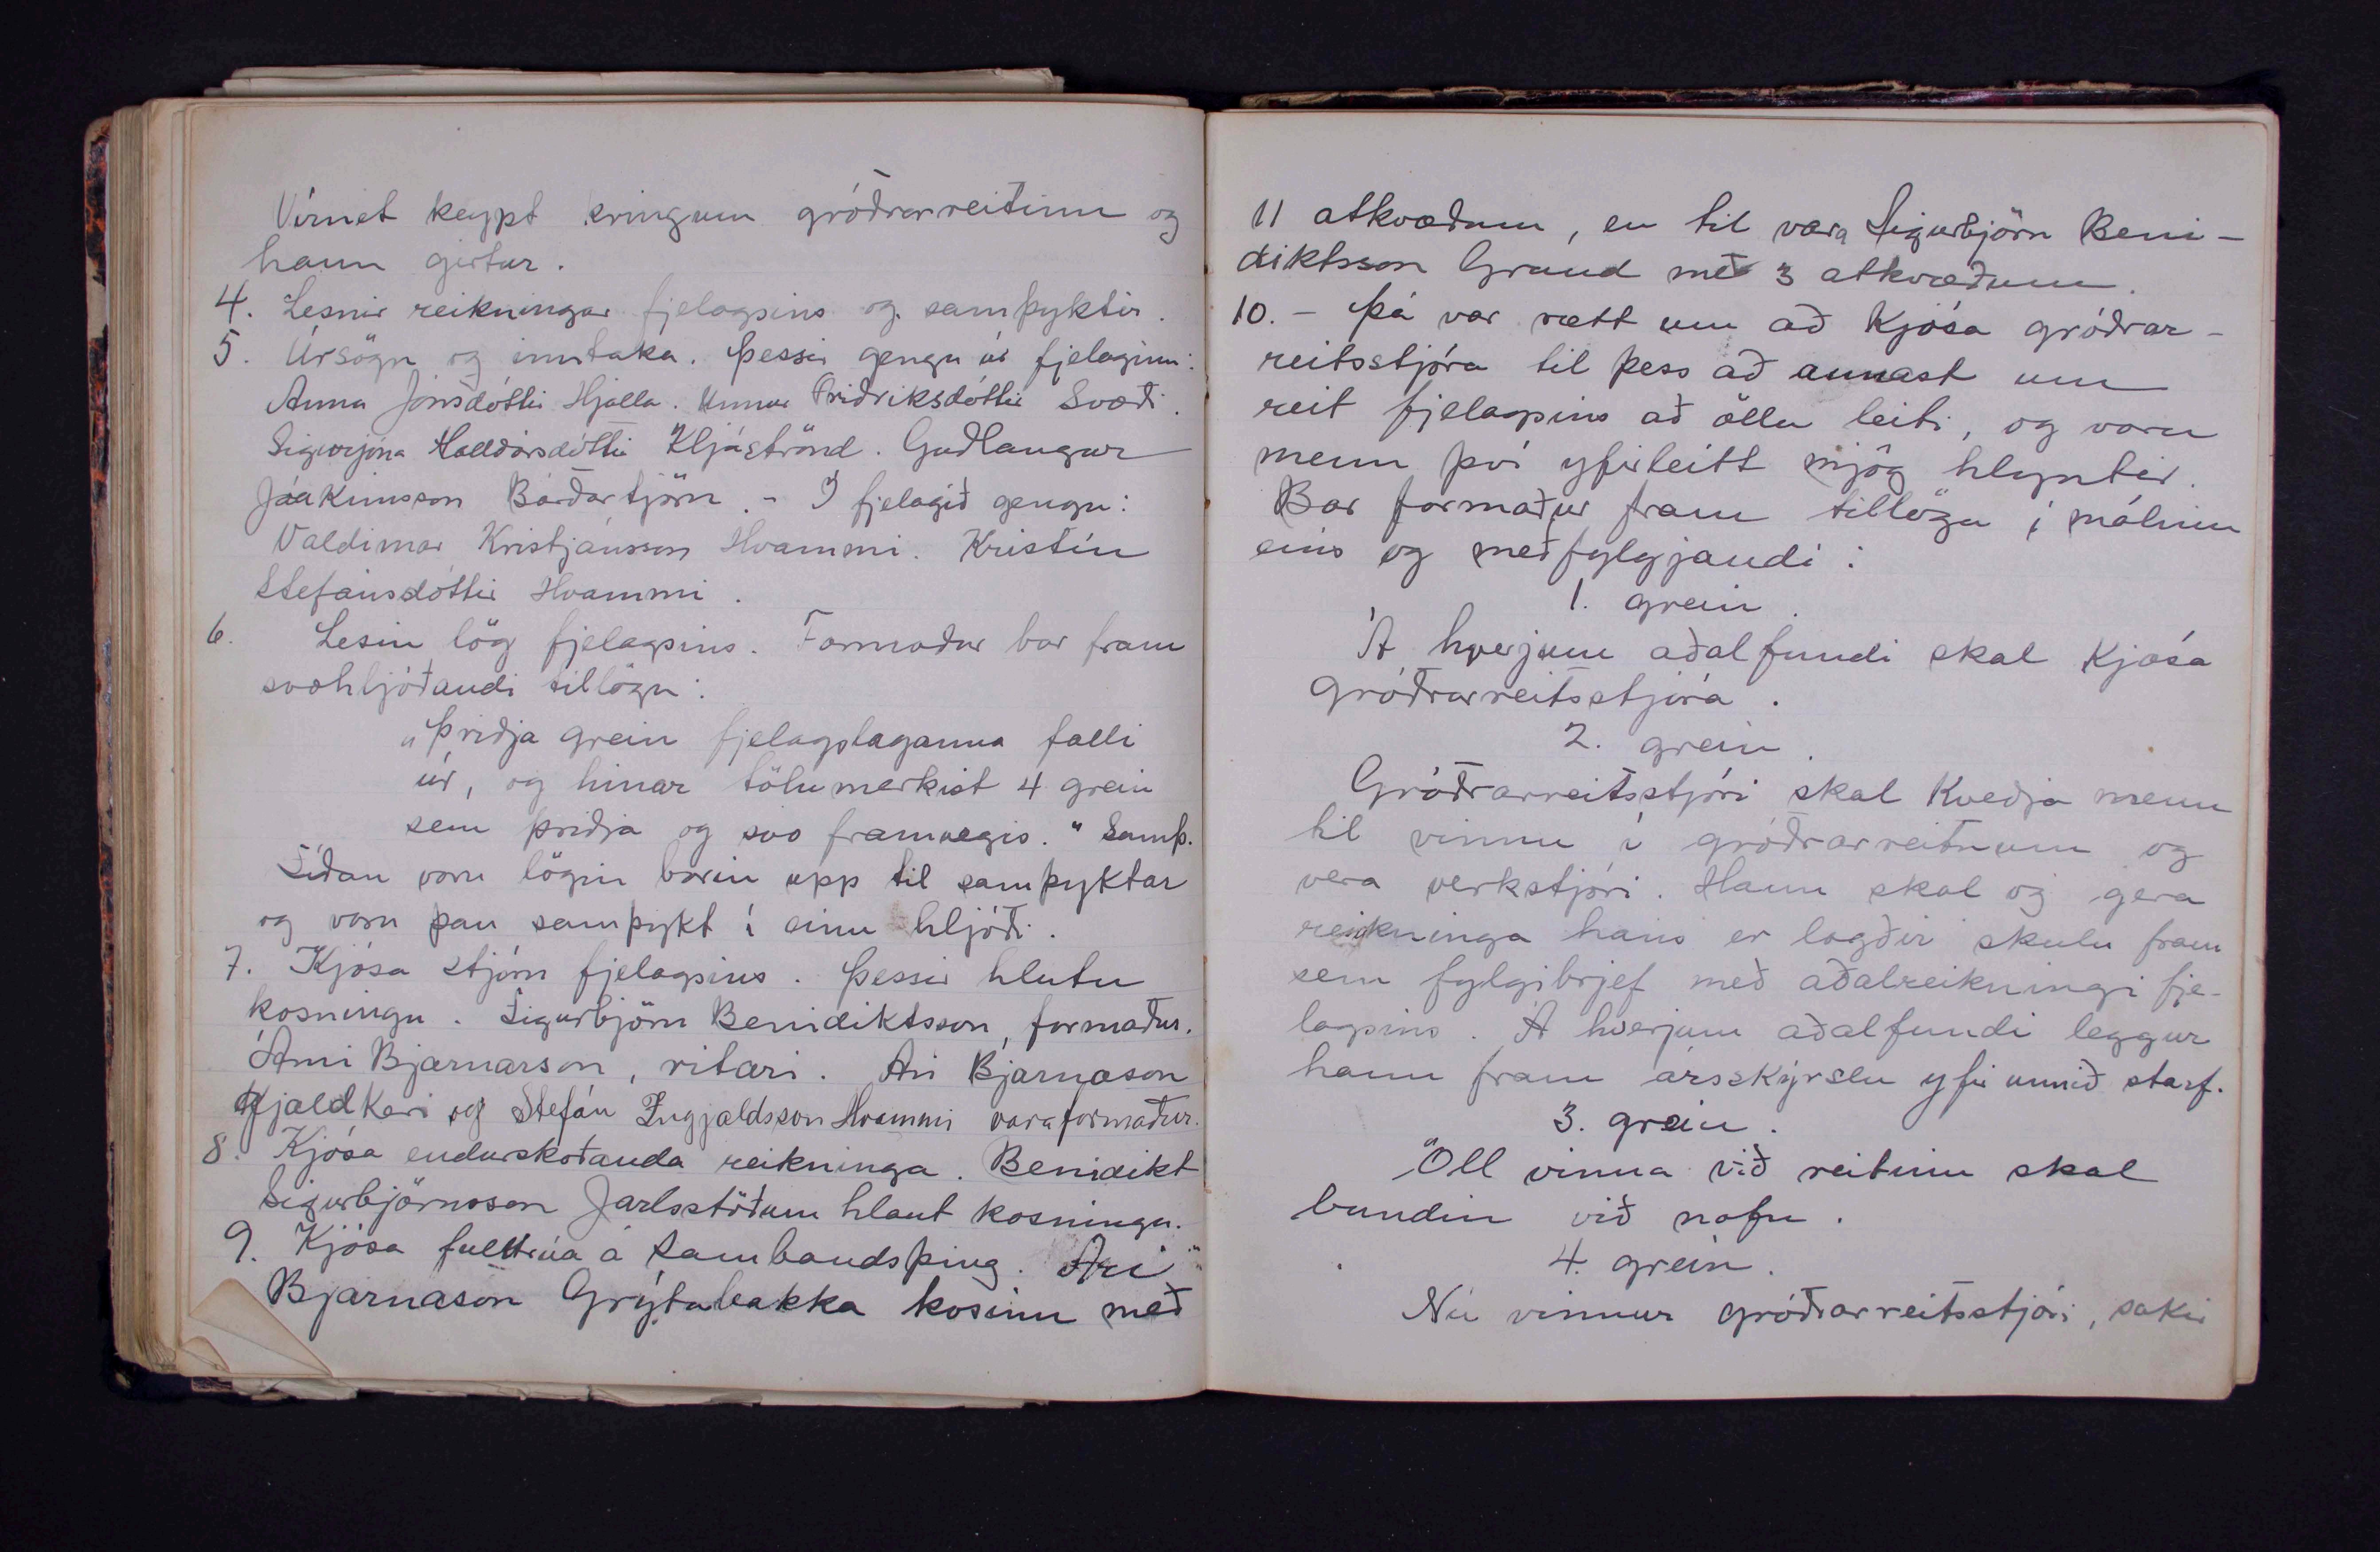 Vírnet keypt kringum gróðrarreitinn og
hann girtur.
4. Lesnir reikningar fjelagsins og samþyktir.
5. Úrsögn og inntaka. Þessir gengu úr fjelaginu:
Anna Jónsdóttir Hjalla. Unnur Friðriksdóttir Svæði.
Sigurjóna Halldórsdóttir Hljáströnd. Guðlaugur
Jóakimsson Bárðartjörn. - Í fjelagið gengu:
Valdimar Kristjánsson Hvammi. Kristín
Stefánsdóttir Hvammi.
6. Lesin lög fjelagsins. Formaður bar fram
svohljóðandi tillögu:
„Þriðja grein fjelagslaganna falli
úr, og hinar tölumerkist 4 grein
sem þriðja og svo framvegis." Samþ.
Síðan voru lögin borin upp til samþyktar
og voru þau samþykt í einu hljóði.
7. Kjósa stjórn fjelagsins. Þessir hlutu
kosningu. Sigurbjörn Benidiktsson, formaður.
Árni Bjarnarson, ritari. Ari Bjarnason
gjaldkeri og Stefán Ingjaldsson Hvammi varaformaður.
8. Kjósa endurskoðanda reikninga. Benidikt
Sigurbjörnsson Jarlsstöðum hlaut kosningu.
9. Kjósa fulltrúa á Sambandsþing. Ari
Bjarnason Grýtubakka kosinn með
11 atkvæðum, en til vara Sigurbjörn Beni-
diktsson Grund með 3 atkvæðum.
10. - Þá var rætt um að kjósa gróðrar-
reitsstjóra til þess að annast um
reit fjelagsins að öllu leiti, og voru
menn því yfirleitt mjög hlyntir.
Bar formaður fram tillögu í málinu
eins og meðfylgjandi:
1. grein.
Á hverjum aðalfundi skal kjósa
gróðrarreitsstjóra.
2. grein.
Gróðrarreitsstjóri skal kveðja menn
til vinnu í gróðrarreitnum og
vera verkstjóri. Hann skal og gera
reikninga hans er lagðir skulu fram
sem fylgibrjef með aðalreikningi fje-
lagsins. Á hverjum aðalfundi leggur
hann fram ársskýrslu yfir unnið starf.
3. grein.
Öll vinna við reitinn skal
bundin við nafn.
4. grein.
Nú vinnur gróðrarreitsstjóri, sakir